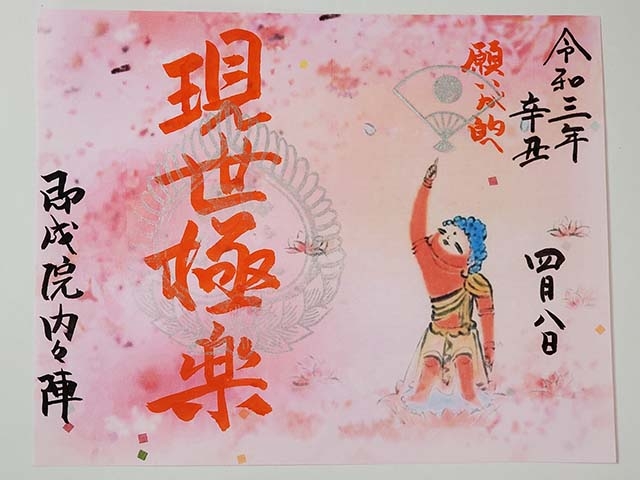 令和三年
辛丑
四月八日
願い成的へ
現世極楽
即成院内々陣